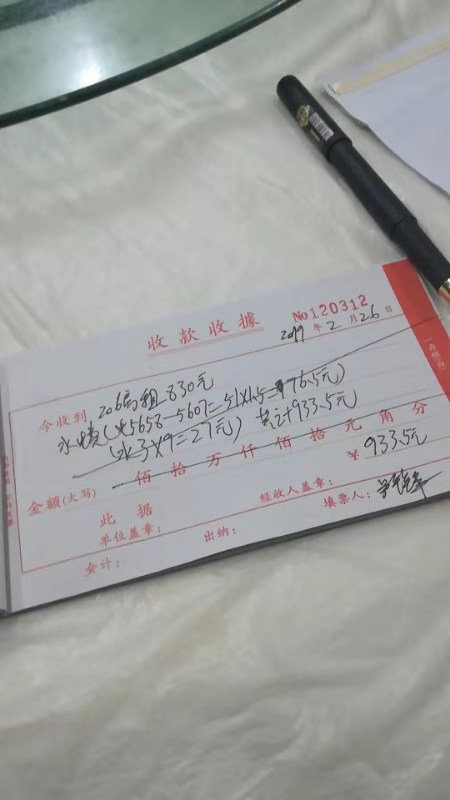 收款收據
No120312
2019年2月26日
今收到 206房租830元
水费(电5658-5607=51×1.5=76.5元)
(水3×9=27元) 共计933.5元
金额(大写) 佰拾万仟佰拾元角分
¥933.5元
此据
单位盖章： 出纳： 经收人盖章： 填票人：
会计：
(存根白)